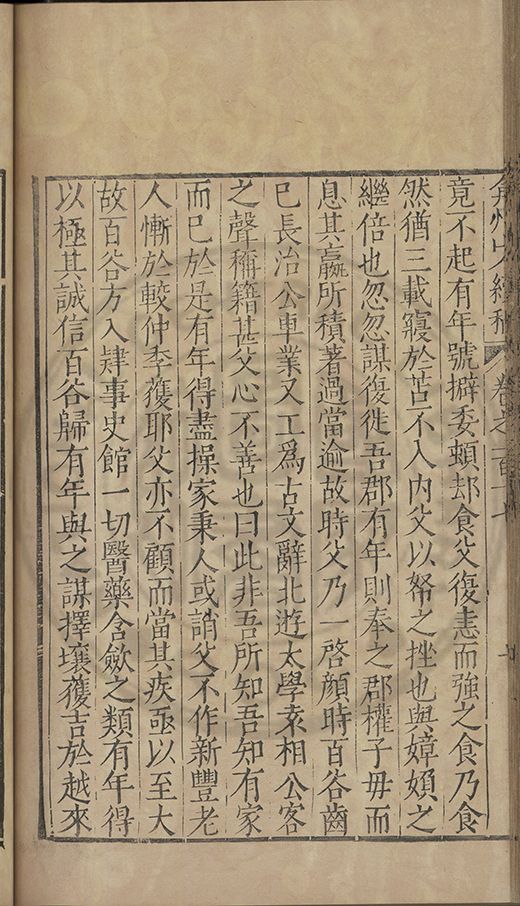 弇州山人續稿 卷之一百十七
竟不起有年號擗委頓却食父復恚而強之食乃食
然猶三載寢於苫不入內父以帑之挫也與嫜媍之
繼倍也忽忽謀復徙吾郡有年則奉之郡權子毋而
息其贏所積著過當逾故時父乃一啓顏時百谷齒
已長治公車業又工爲古文辭北遊太學袁相公客
之聲稱籍甚父心不善也曰此非吾所知吾知有家
而已於是有年得盡操家秉人或誚父不作新豐老
人慚於較仲季獲耶父亦不顧而當其疾亟以至大
故百谷方入肄事史館一切醫藥含斂之類有年得
以極其誠信百谷歸有年與之謀擇壤獲吉於越來